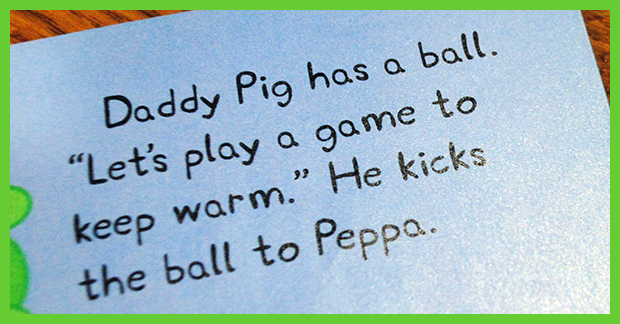 Daddy Pig has a ball.
“Let’s play a game to
keep warm.” He kicks
the ball to Peppa.